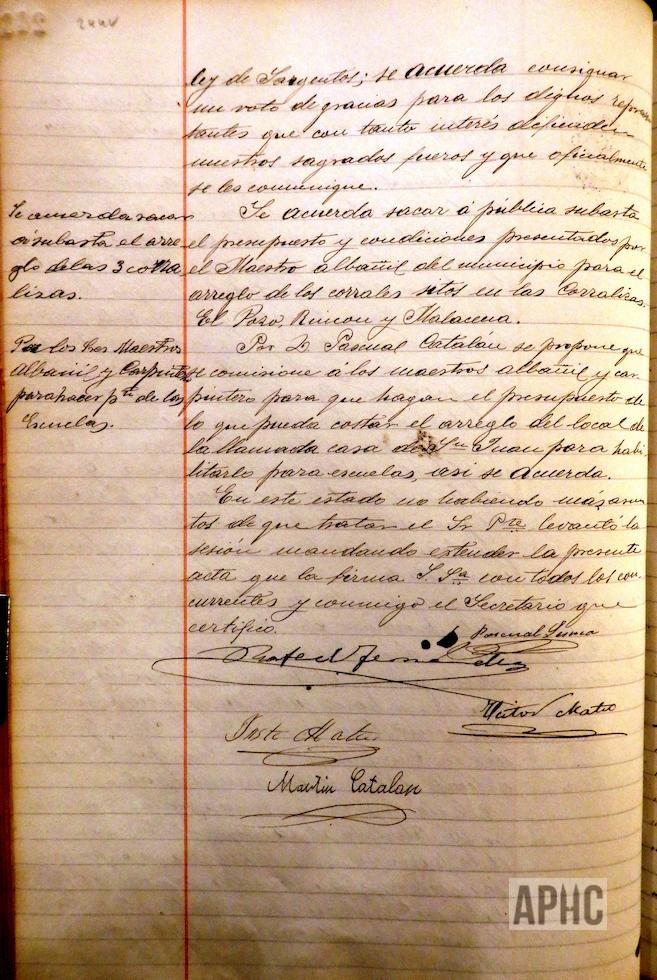 244v
ley de Sargentos; se acuerda consignar
un voto de gracias para los dignos represen
tantes que con tanto interés defienden
nuestros sagrados fueros y que oficialmente
se les comunique.
Se acuerda sacar
á subasta el arre
glo de las 3 corra
lizas.
Se acuerda sacar á pública subasta
el presupuesto y condiciones presentados por
el Maestro albañil del municipio para el
arreglo de los corrales sitos en las Corralizas.
El Pozo, Rincon y Malacena.
los Maestros
albañil y Carpintero
para hacer pto de las
Escuelas.
Por D. Pascual Catalán se propone que
se comisione á los maestros albañil y car
pintero para que hagan el presupuesto de
lo que pueda costar el arreglo del local de
la llamada casa de Sn Juan para habi
litarlo para escuelas, asi se acuerda.
En este estado no habiendo más asun
tos de que tratar el Sr Pte levantó la
sesión mandando extender la presente
acta que la firma S. Sria con todos los con
currentes y conmigo el Secretario que
certifico.
Pascual
Rafael Fernandez
Victor Mateo
Justo
Martin Catalan
APHC